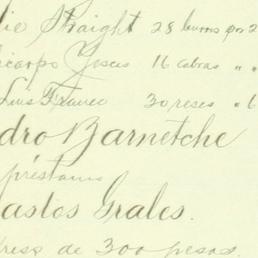 lie Straight 28 burros por 2
icarpo Yescis 16 cabras " "
Luis Franco 30 reses " 6
dro Barnetche
préstamo
astos Grales.
press de 300 pesos.